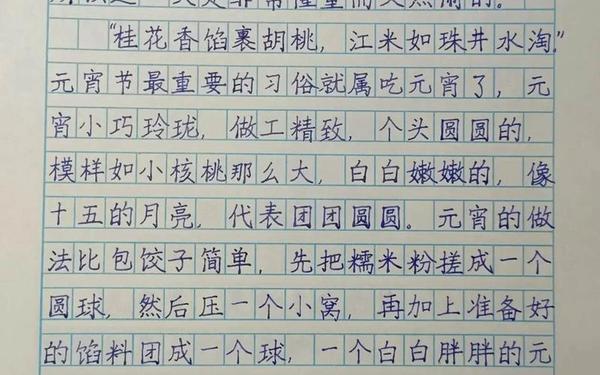 “桂花香馅裹胡桃，江米如珠井水淘。”
元宵节最重要的习俗就属吃元宵了，元
宵小巧玲珑，做工精致，个头圆圆的，
模样如小核桃那么大，白白嫩嫩的，像
十五的月亮，代表团团圆圆。元宵的做
法比包饺子简单，先把糯米粉搓成一个
圆球，然后压一个小窝，再加上准备好
的馅料团成一个球，一个白白胖胖的元